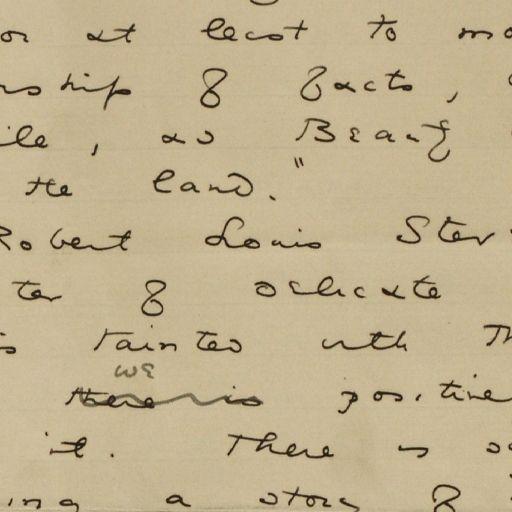 or at least to mo
rship of facts,
ile, and Beauty
the land."
Robert Louis Stev
ter of delicate
s tainted with th
we
there is positive
it. There is s
ing a story of